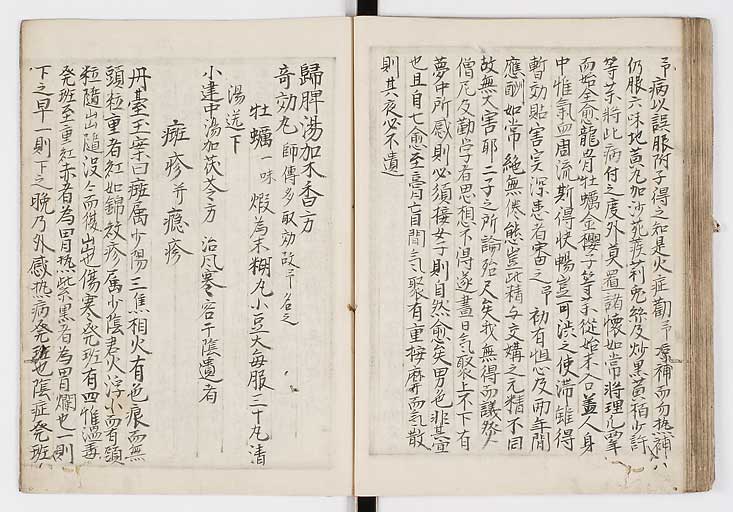 予病以誤服附子得之知是火症勸予凉補而勿热補八
仍服六味地黃丸加沙苑蒺莉兎絲及炒黑黃栢少許
等茶將此病付之度外莫置諸懷如常將理凡四掌
而始全愈龍骨牡蠣金櫻子等茶從始末合蓋人身
中惟氣血周流斯得快暢豈可洪之使滞雖得
暫効貽害實深患者審之予初有怛忌及兩年間
應酬如常絶無倦態豈此精与交媾之元精不同
故無大害耶二子之所論殆尽矣我無得而議然
僧尼及勤学者思想不得遂晝日气聚上不下有
夢中所感則必須接女子則自然愈矣男色非其量
也且自七愈至亭肓間气聚有重按麻而气散
則其夜必不遺
歸脾湯加木香方
奇効丸 師傳多取効故予名之
牡蠣一味 煅為末糊丸小豆大每服三十丸清
湯送下
小建中湯加茯苓方 治風寒客于陰遺者
癍疹并癮疹
丹臺玉案曰癍属少陽三焦相火有色痕而無
頭粒重者紅如錦紋疹属少陰君火浮小而有頭
粒隨出隨没々而復出也傷寒発斑有四惟温毒
発斑至重紅赤者為胃热紫黒者為胃爛也一則
下之早一則下之晚乃外感热病発斑也陰症発斑